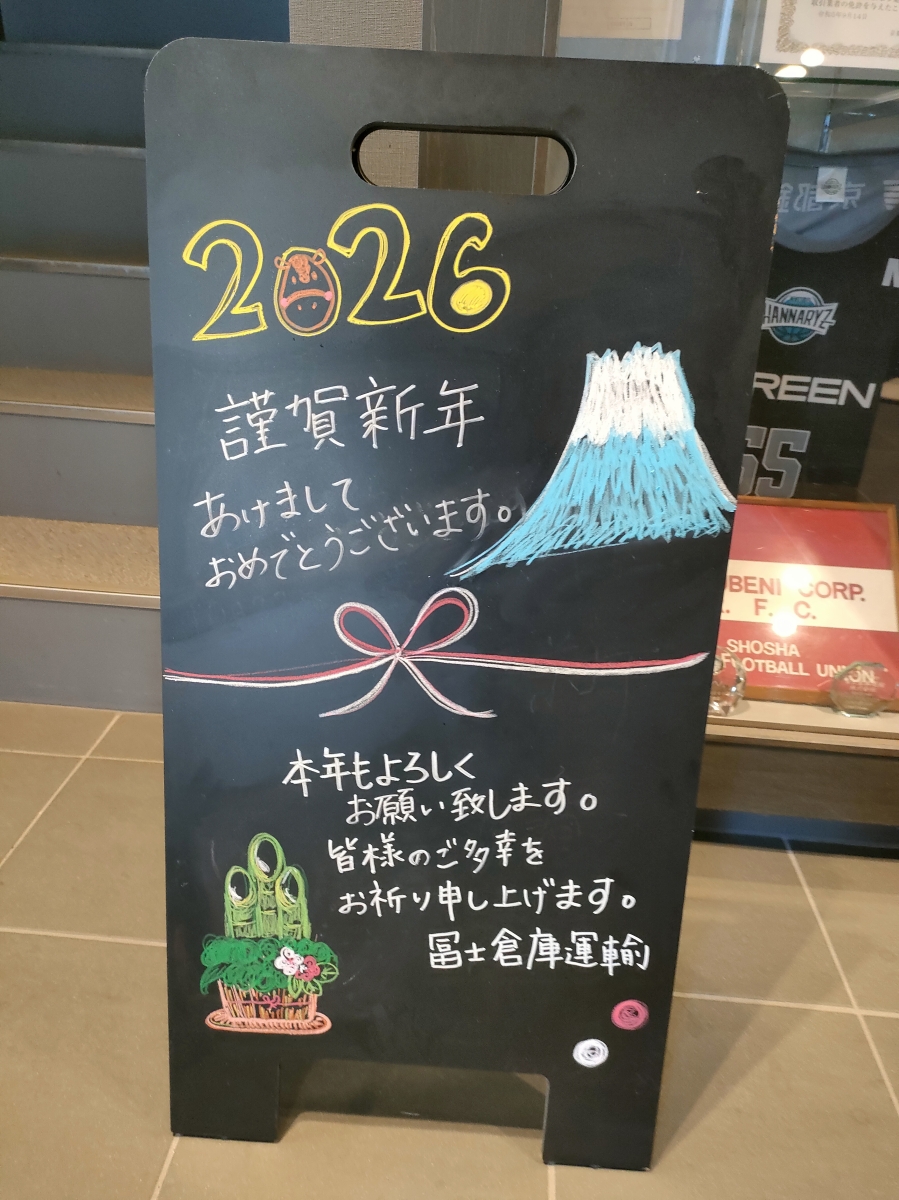 2026
謹賀新年
あけまして
おめでとうございます。
本年もよろしく
お願い致します。
皆様のご多幸を
お祈り申し上げます。
冨士倉庫運輸
HANNARYZ
REEN
55
UBENI CORP.
. F. C.
SHOSHA
FOOTBALL UNION